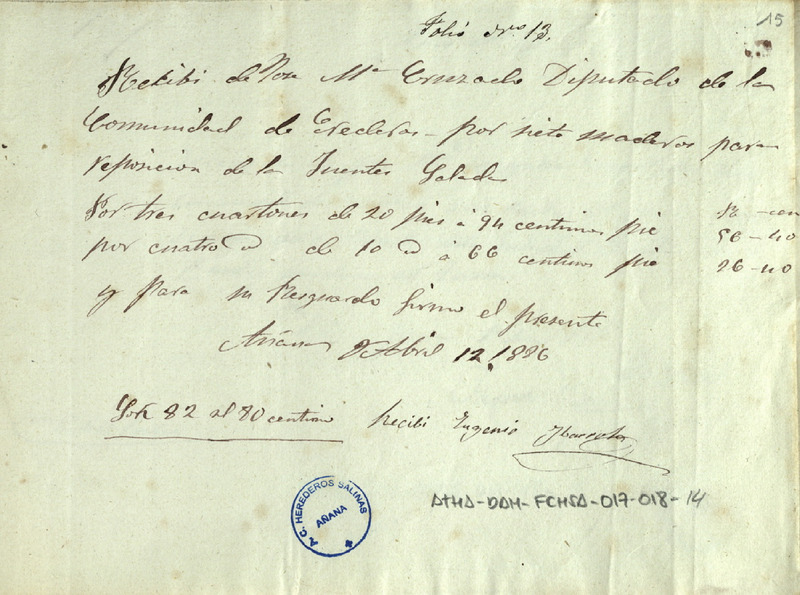 15
Folio nro 13.
Recibi de Jose Mª Cruzado Diputado de la
Comunidad de Erederos por siete maderos para
reposicion de la Fuentes Salada
Por tres cuartones de 20 pies á 94 centimos pie 56-40
por cuatro de 10 á 66 centimos pie 26-40
y para su Resguardo firmo el presente
Añana Abril 12, 1886
82 80 centimo Recibi Eugenio Ibarrola
A.C. HEREDEROS SALINAS
AÑANA
ATHA-DAH-FCHSA-017-018-14